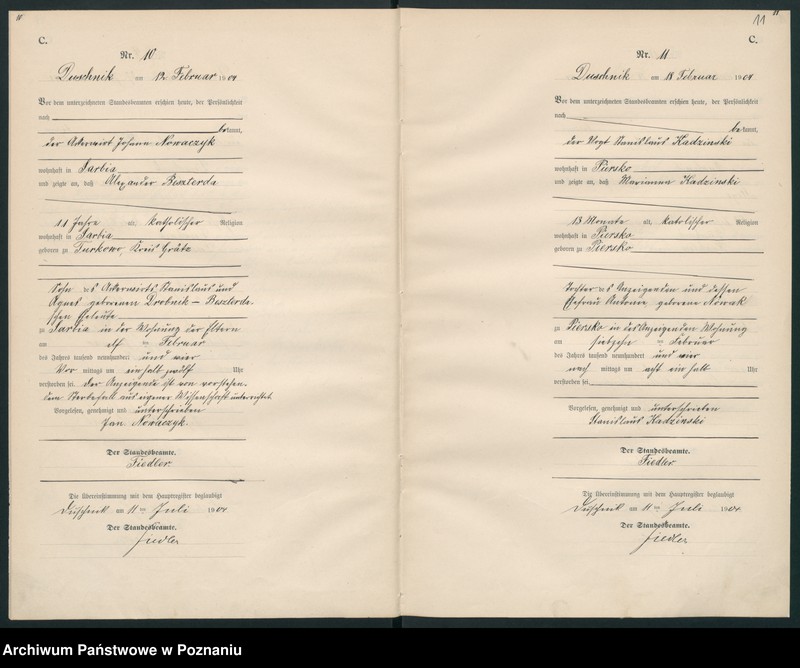 10
C.
Nr. 10
Duschnik am 12 Februar 1904
Vor dem unterzeichneten Standesbeamten erschien heute, der Persönlichkeit
nach
bekannt,
der Ackerwirt Johann Nowaczyk
wohnhaft in Sarbia
und zeigte an, daß Alexander Beszterda
11 Jahre alt, katholischer Religion
wohnhaft in Sarbia
geboren zu Turkowo, Kreis Grätz
Sohn des Ackerwirts Stanislaus und
Agnes geborenen Drobnik - Beszterda-
schen Eheleute
zu Sarbia in der Wohnung der Eltern
am ten Februar
des Jahres tausend neunhundert und vier
Vor mittags um einhalb zwölf Uhr
verstorben sei. Der Anzeigende ist von vorstehen-
dem Sterbefall aus eigener Wissenschaft unterrichtet.
Vorgelesen, genehmigt und unterschrieben
Jan Nowaczyk.
Der Standesbeamte.
Fiedler.
Die Übereinstimmung mit dem Hauptregister beglaubigt
Duschnik am 11 ten Juli 1904
Der Standesbeamte.
Fiedler
11
11
C.
Nr. 11
Duschnik am 18 Februar 1904
Vor dem unterzeichneten Standesbeamten erschien heute, der Persönlichkeit
nach
bekannt,
der Vogt Stanislaus Kadzinski
wohnhaft in Piersko
und zeigte an, daß Marianna Kadzinski
13 Monate alt, katolischer Religion
wohnhaft in Piersko
geboren zu Piersko
Tochter des Anzeigenden und dessen
Ehefrau Antonie geborene Nowak
zu Piersko in des Anzeigenden Wohnung
am siebzehn ten Februar
des Jahres tausend neunhundert und vier
nach mittags um acht ein halb Uhr
verstorben sei.
Vorgelesen, genehmigt und unterschrieben
Stanislaus Kadzinski
Der Standesbeamte.
Fiedler
Die Übereinstimmung mit dem Hauptregister beglaubigt
Duschnik am 11 ten Juli 1904
Der Standesbeamte.
Fiedler
Archiwum Państwowe w Poznaniu